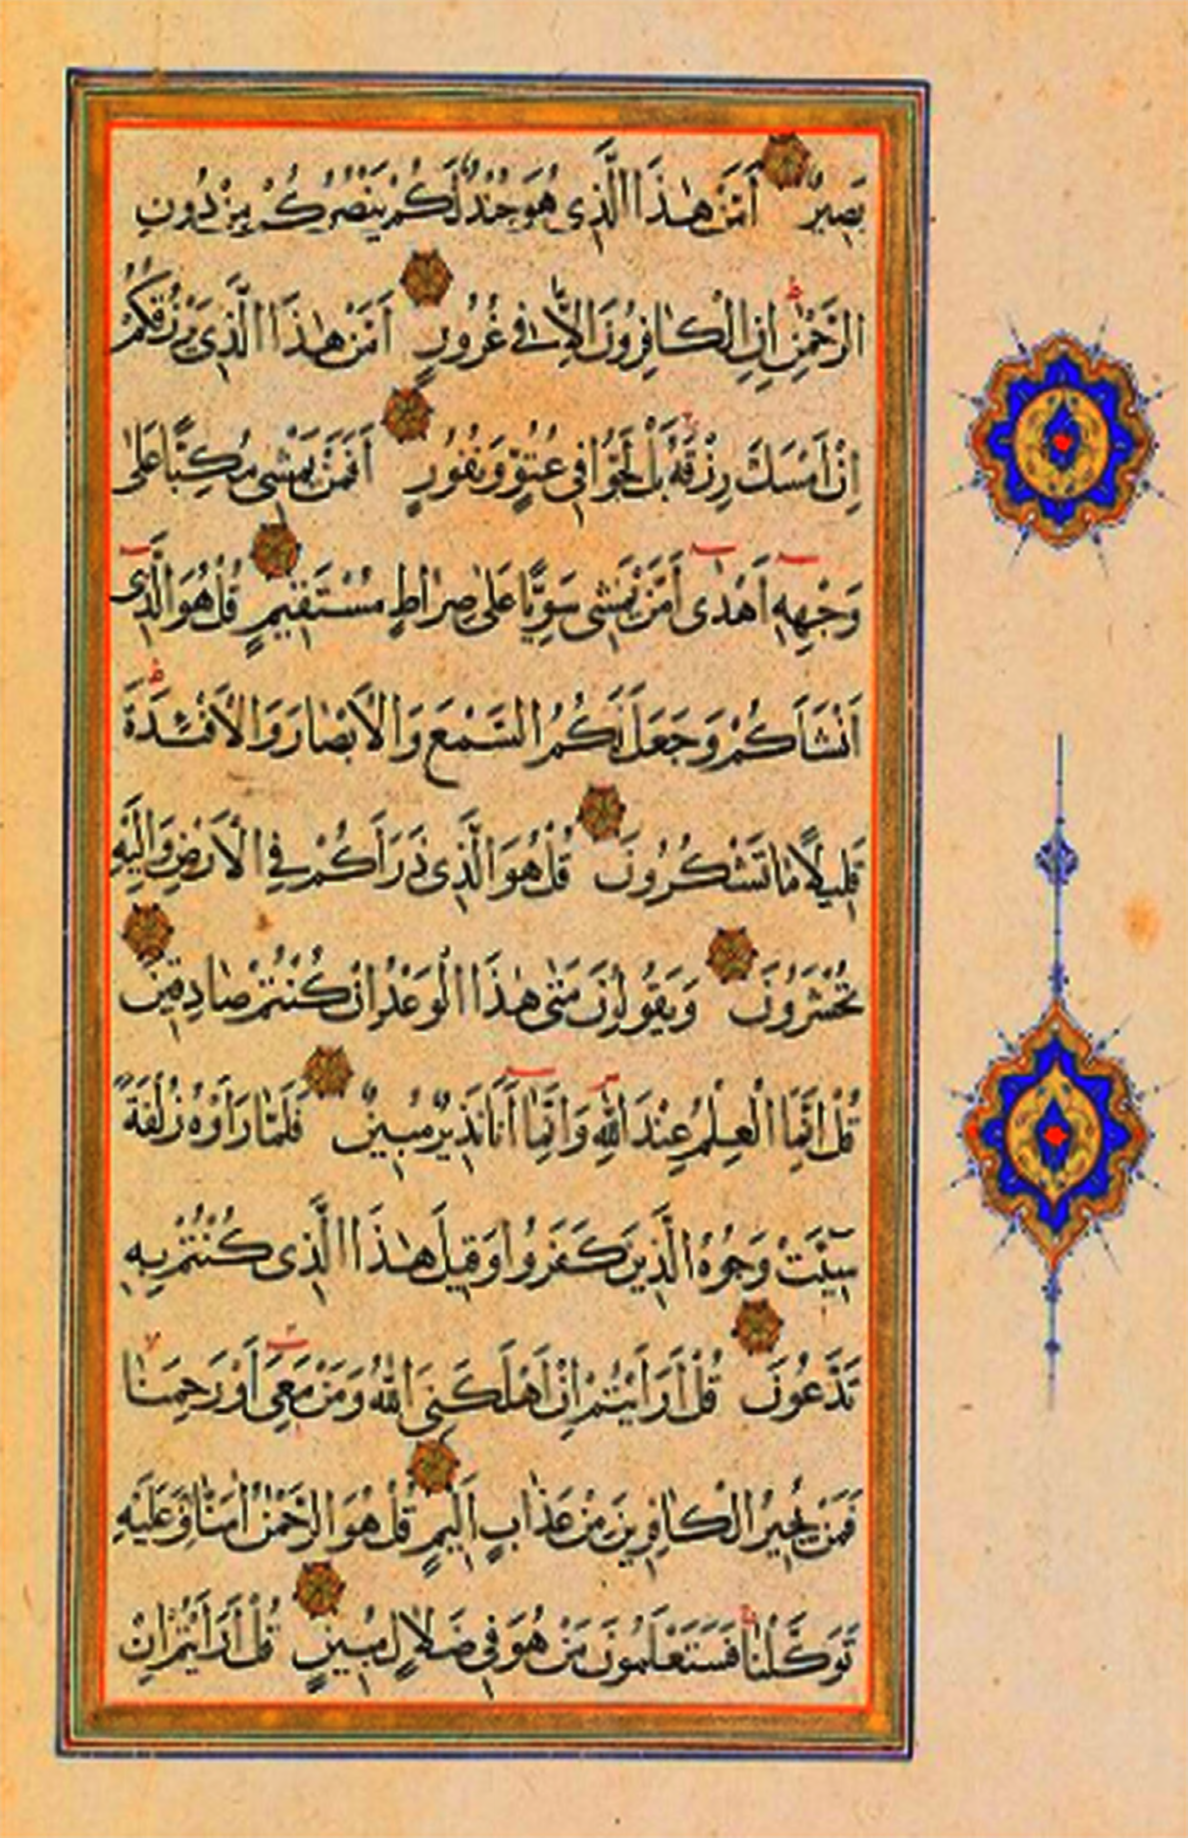 بَصِيرٌ اَمَّنْ هٰذَا الَّذِى هُوَ جُنْدٌ لَكُمْ يَنْصُرُكُمْ مِنْ دُونِ
الرَّحْمٰنِ ط اِنِ الْكَافِرُونَ اِلَّا فِى غُرُورٍ اَمَّنْ هٰذَا الَّذِى يَرْزُقُكُمْ
اِنْ اَمْسَكَ رِزْقَهُ ج بَلْ لَجُّوا فِى عُتُوٍّ وَنُفُورٍ اَفَمَنْ يَمْشِى مُكِبًّا عَلٰى
وَجْهِهِ اَهْدٰى اَمَّنْ يَمْشِى سَوِيًّا عَلٰى صِرَاطٍ مُسْتَقِيمٍ قُلْ هُوَ الَّذِى
اَنْشَاَكُمْ وَجَعَلَ لَكُمُ السَّمْعَ وَالْاَبْصَارَ وَالْاَفْئِدَةَ ط
قَلِيلًا مَا تَشْكُرُونَ قُلْ هُوَ الَّذِى ذَرَاَكُمْ فِى الْاَرْضِ وَاِلَيْهِ
تُحْشَرُونَ وَيَقُولُونَ مَتٰى هٰذَا الْوَعْدُ اِنْ كُنْتُمْ صَادِقِينَ
قُلْ اِنَّمَا الْعِلْمُ عِنْدَ اللّٰهِ وَاِنَّمَا اَنَا نَذِيرٌ مُبِينٌ فَلَمَّا رَاَوْهُ زُلْفَةً
سِيئَتْ وُجُوهُ الَّذِينَ كَفَرُوا وَقِيلَ هٰذَا الَّذِى كُنْتُمْ بِهِ
تَدَّعُونَ قُلْ اَرَاَيْتُمْ اِنْ اَهْلَكَنِىَ اللّٰهُ وَمَنْ مَعِىَ اَوْ رَحِمَنَا
فَمَنْ يُجِيرُ الْكَافِرِينَ مِنْ عَذَابٍ اَلِيمٍ قُلْ هُوَ الرَّحْمٰنُ اٰمَنَّا بِهِ وَعَلَيْهِ
تَوَكَّلْنَا ج فَسَتَعْلَمُونَ مَنْ هُوَ فِى ضَلَالٍ مُبِينٍ قُلْ اَرَاَيْتُمْ اِنْ